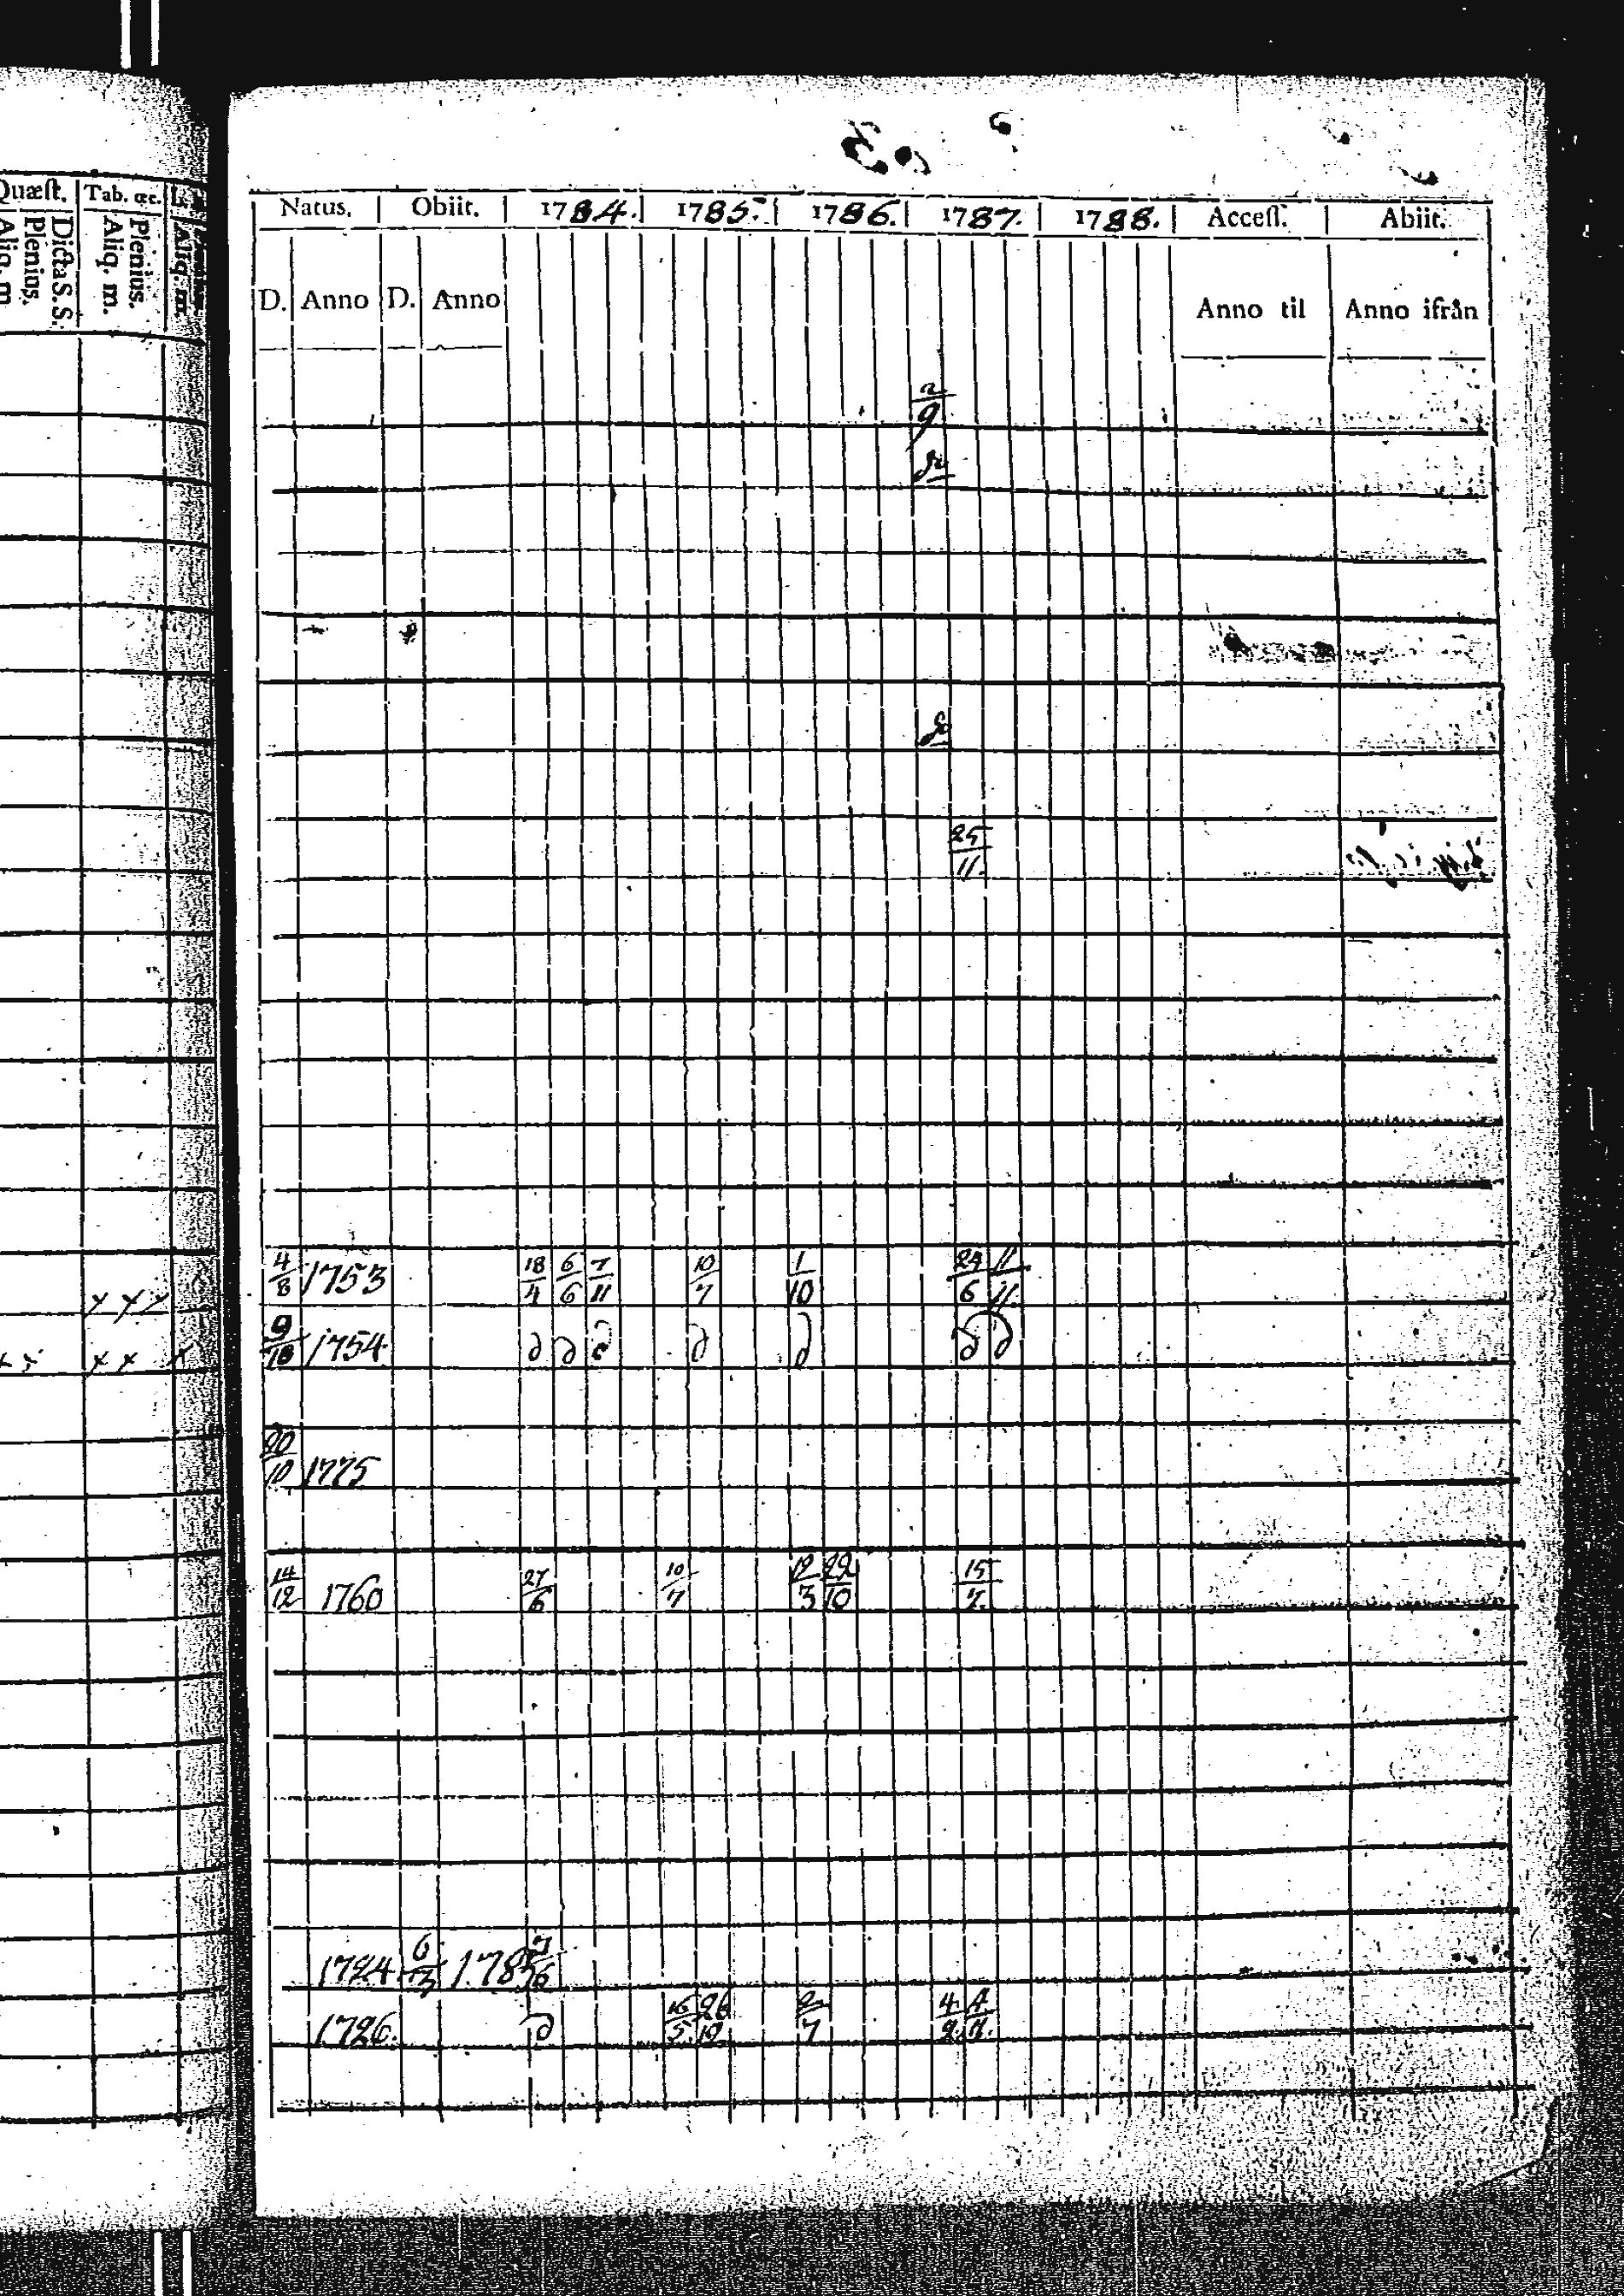 Quæst. Tab. œc.
Dicta S. S. Plenius. Aliq. m. Plenius. Aliq. m. Aliq. m.
Natus. Obiit. 1784. 1785. 1786. 1787. 1788. Access. Abiit.
D. Anno D. Anno Anno til Anno ifrån
25/11.
x x x 4/8 1753 18/4 6/6 7/11 10/7 1/10 24/6 11/11.
x x x x x 9/10 1754 d d d d d d d
20/10 1775
14/12 1760 27/6 10/7 12/3 22/10 15/7.
1724 6/3 1785 7/6
1726. d 16/5 26/10 2/7 4/2.